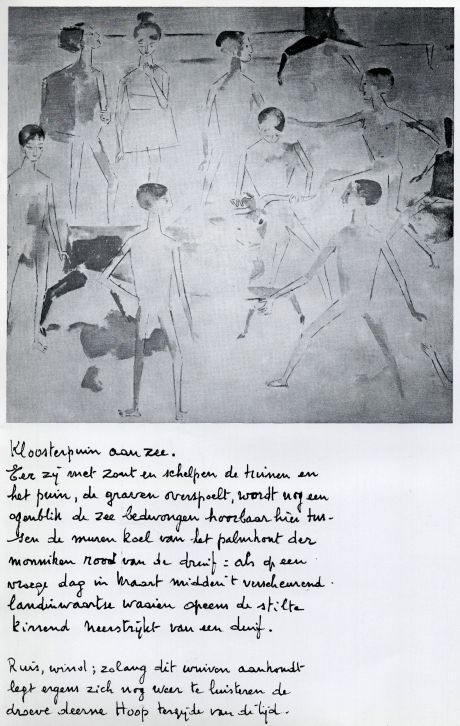 Kloosterpuin aan zee.
Eer zij met zout en schelpen de tuinen en
het puin, de graven overspoelt, wordt nog een
ogenblik de zee bedwongen hoorbaar hier tus-
sen de muren koel van het palmhout der
monniken rood van de druif : als op een
vroege dag in Maart midden 't verscheurend
landinwaartse waaien opeens de stilte
kirrend neerstrijkt van een duif.
Ruis, wind ; zolang dit wuiven aanhoudt
legt ergens zich nog weer te luisteren de
droeve deerne Hoop terzijde van de tijd.